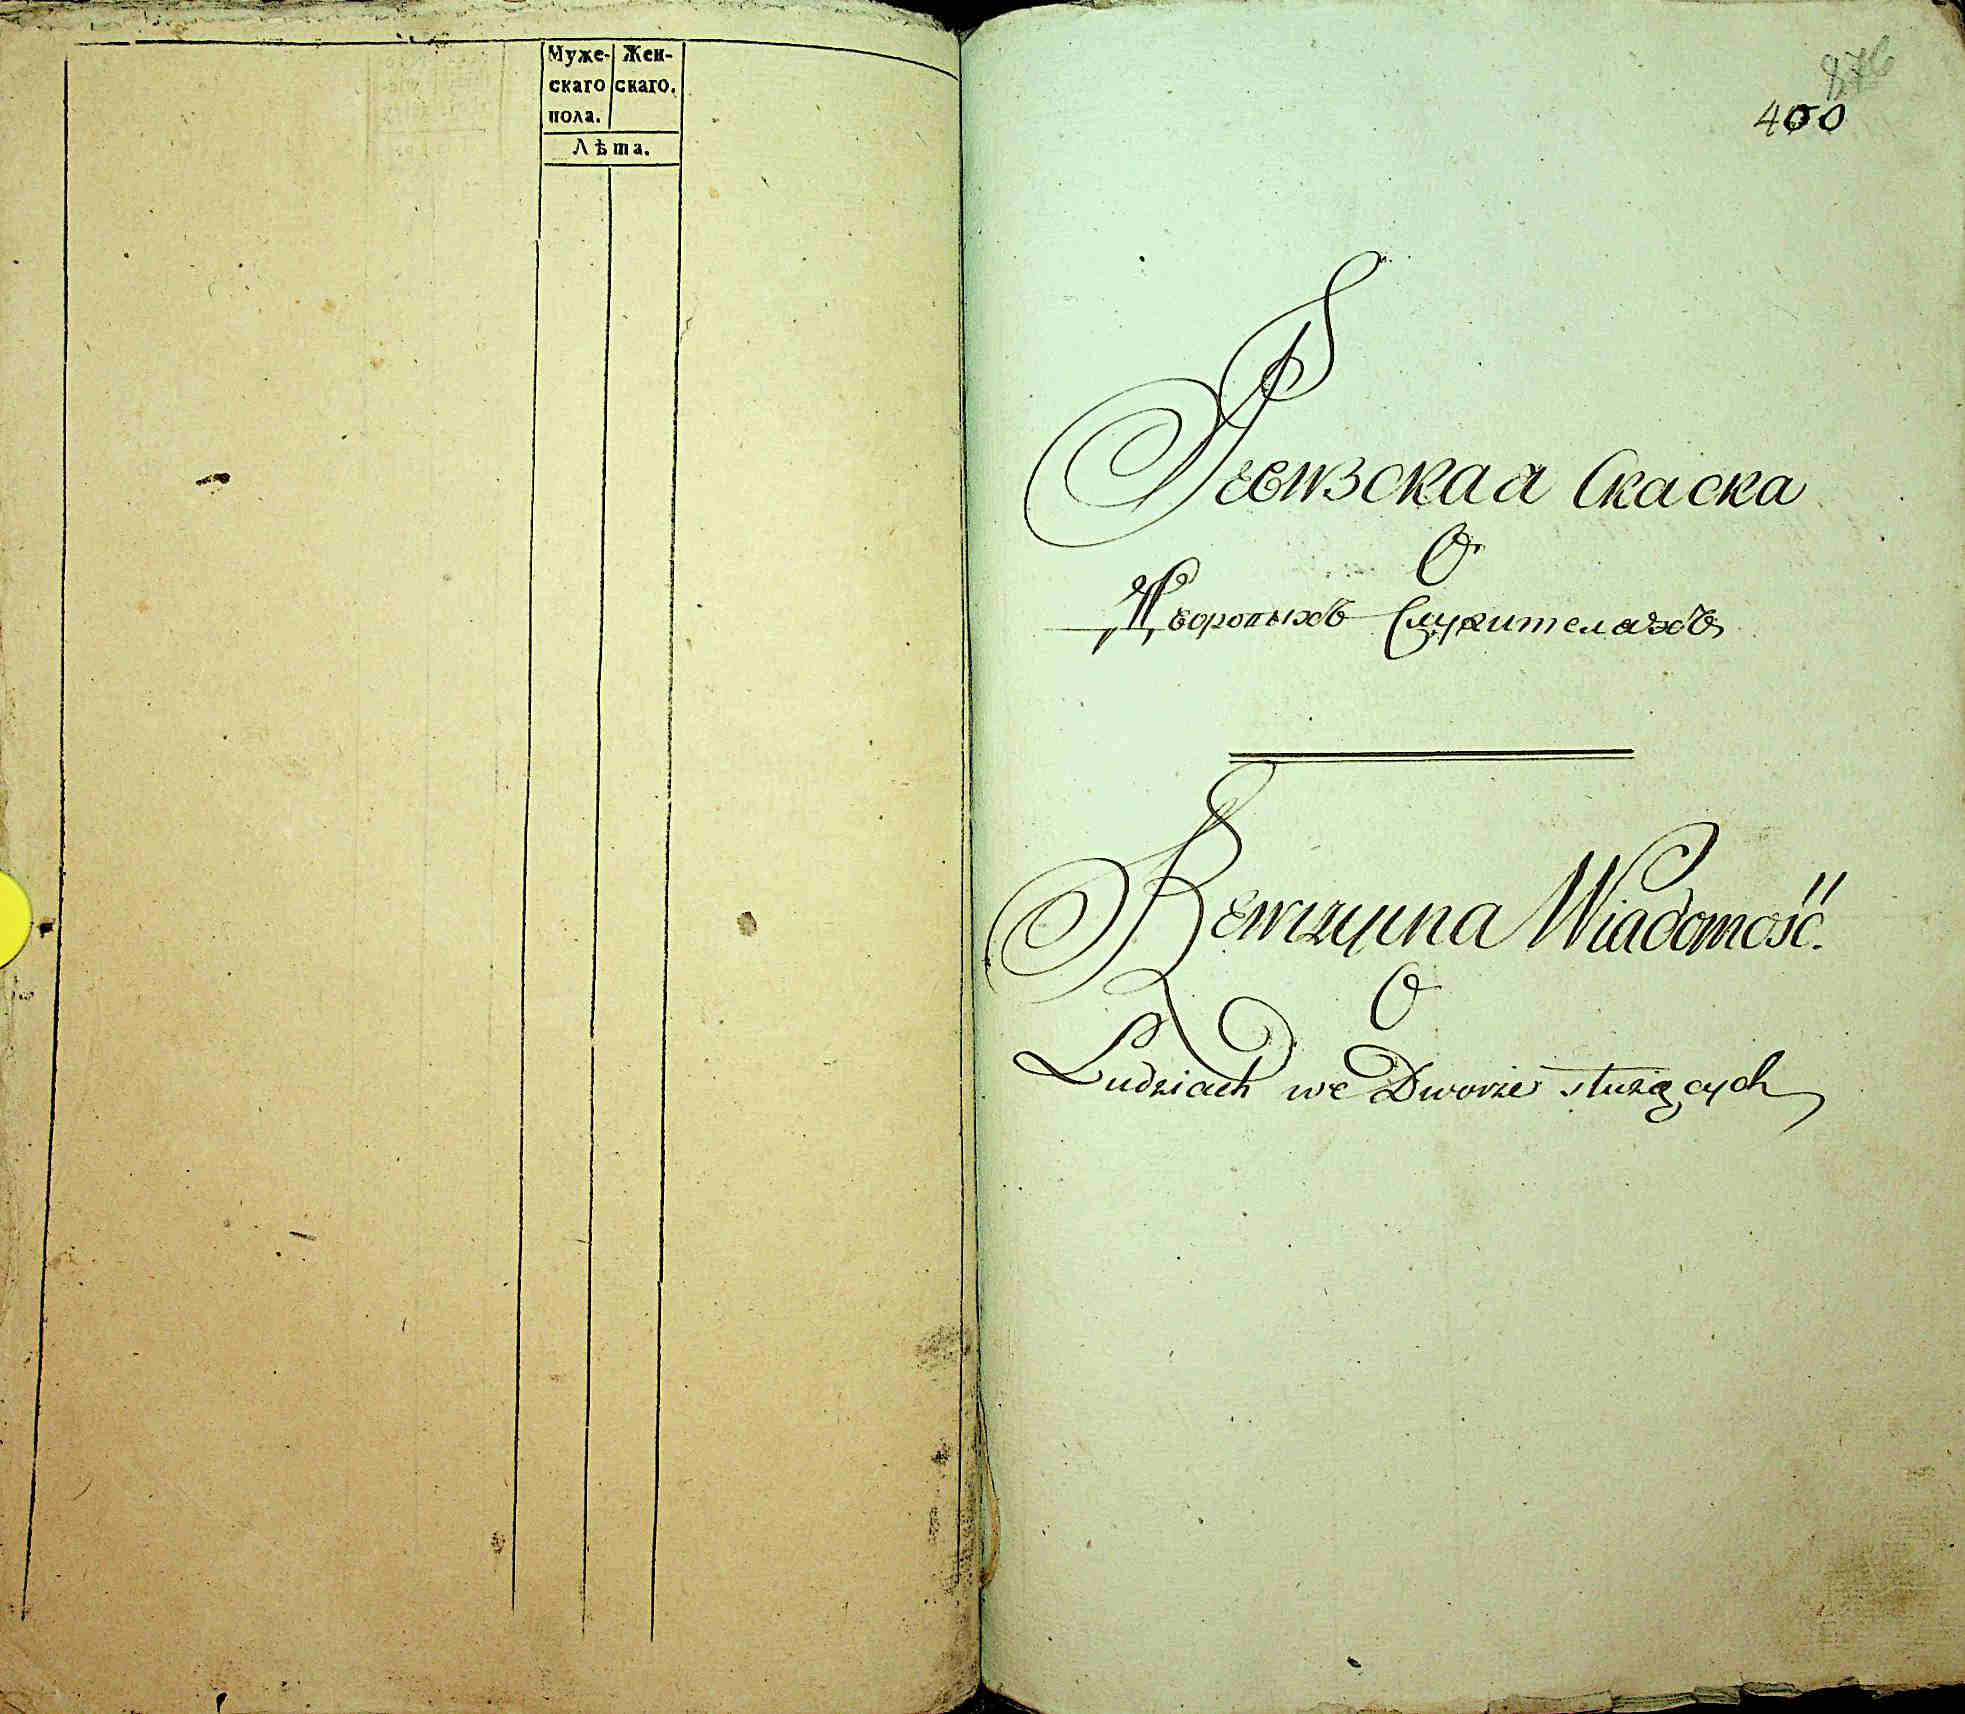 Муже- Жен-
скаго скаго.
пола.
Лѣта.
400
Ревизская Скаска
О
Дворовыхъ Служителахъ
Rewizyina Wiadomość.
O
Ludziach we Dworze służących